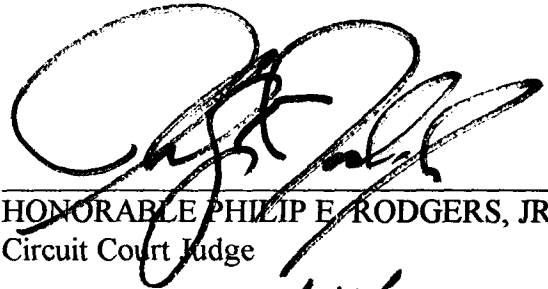 HONORABLE PHILIP E. RODGERS, JR
Circuit Court Judge